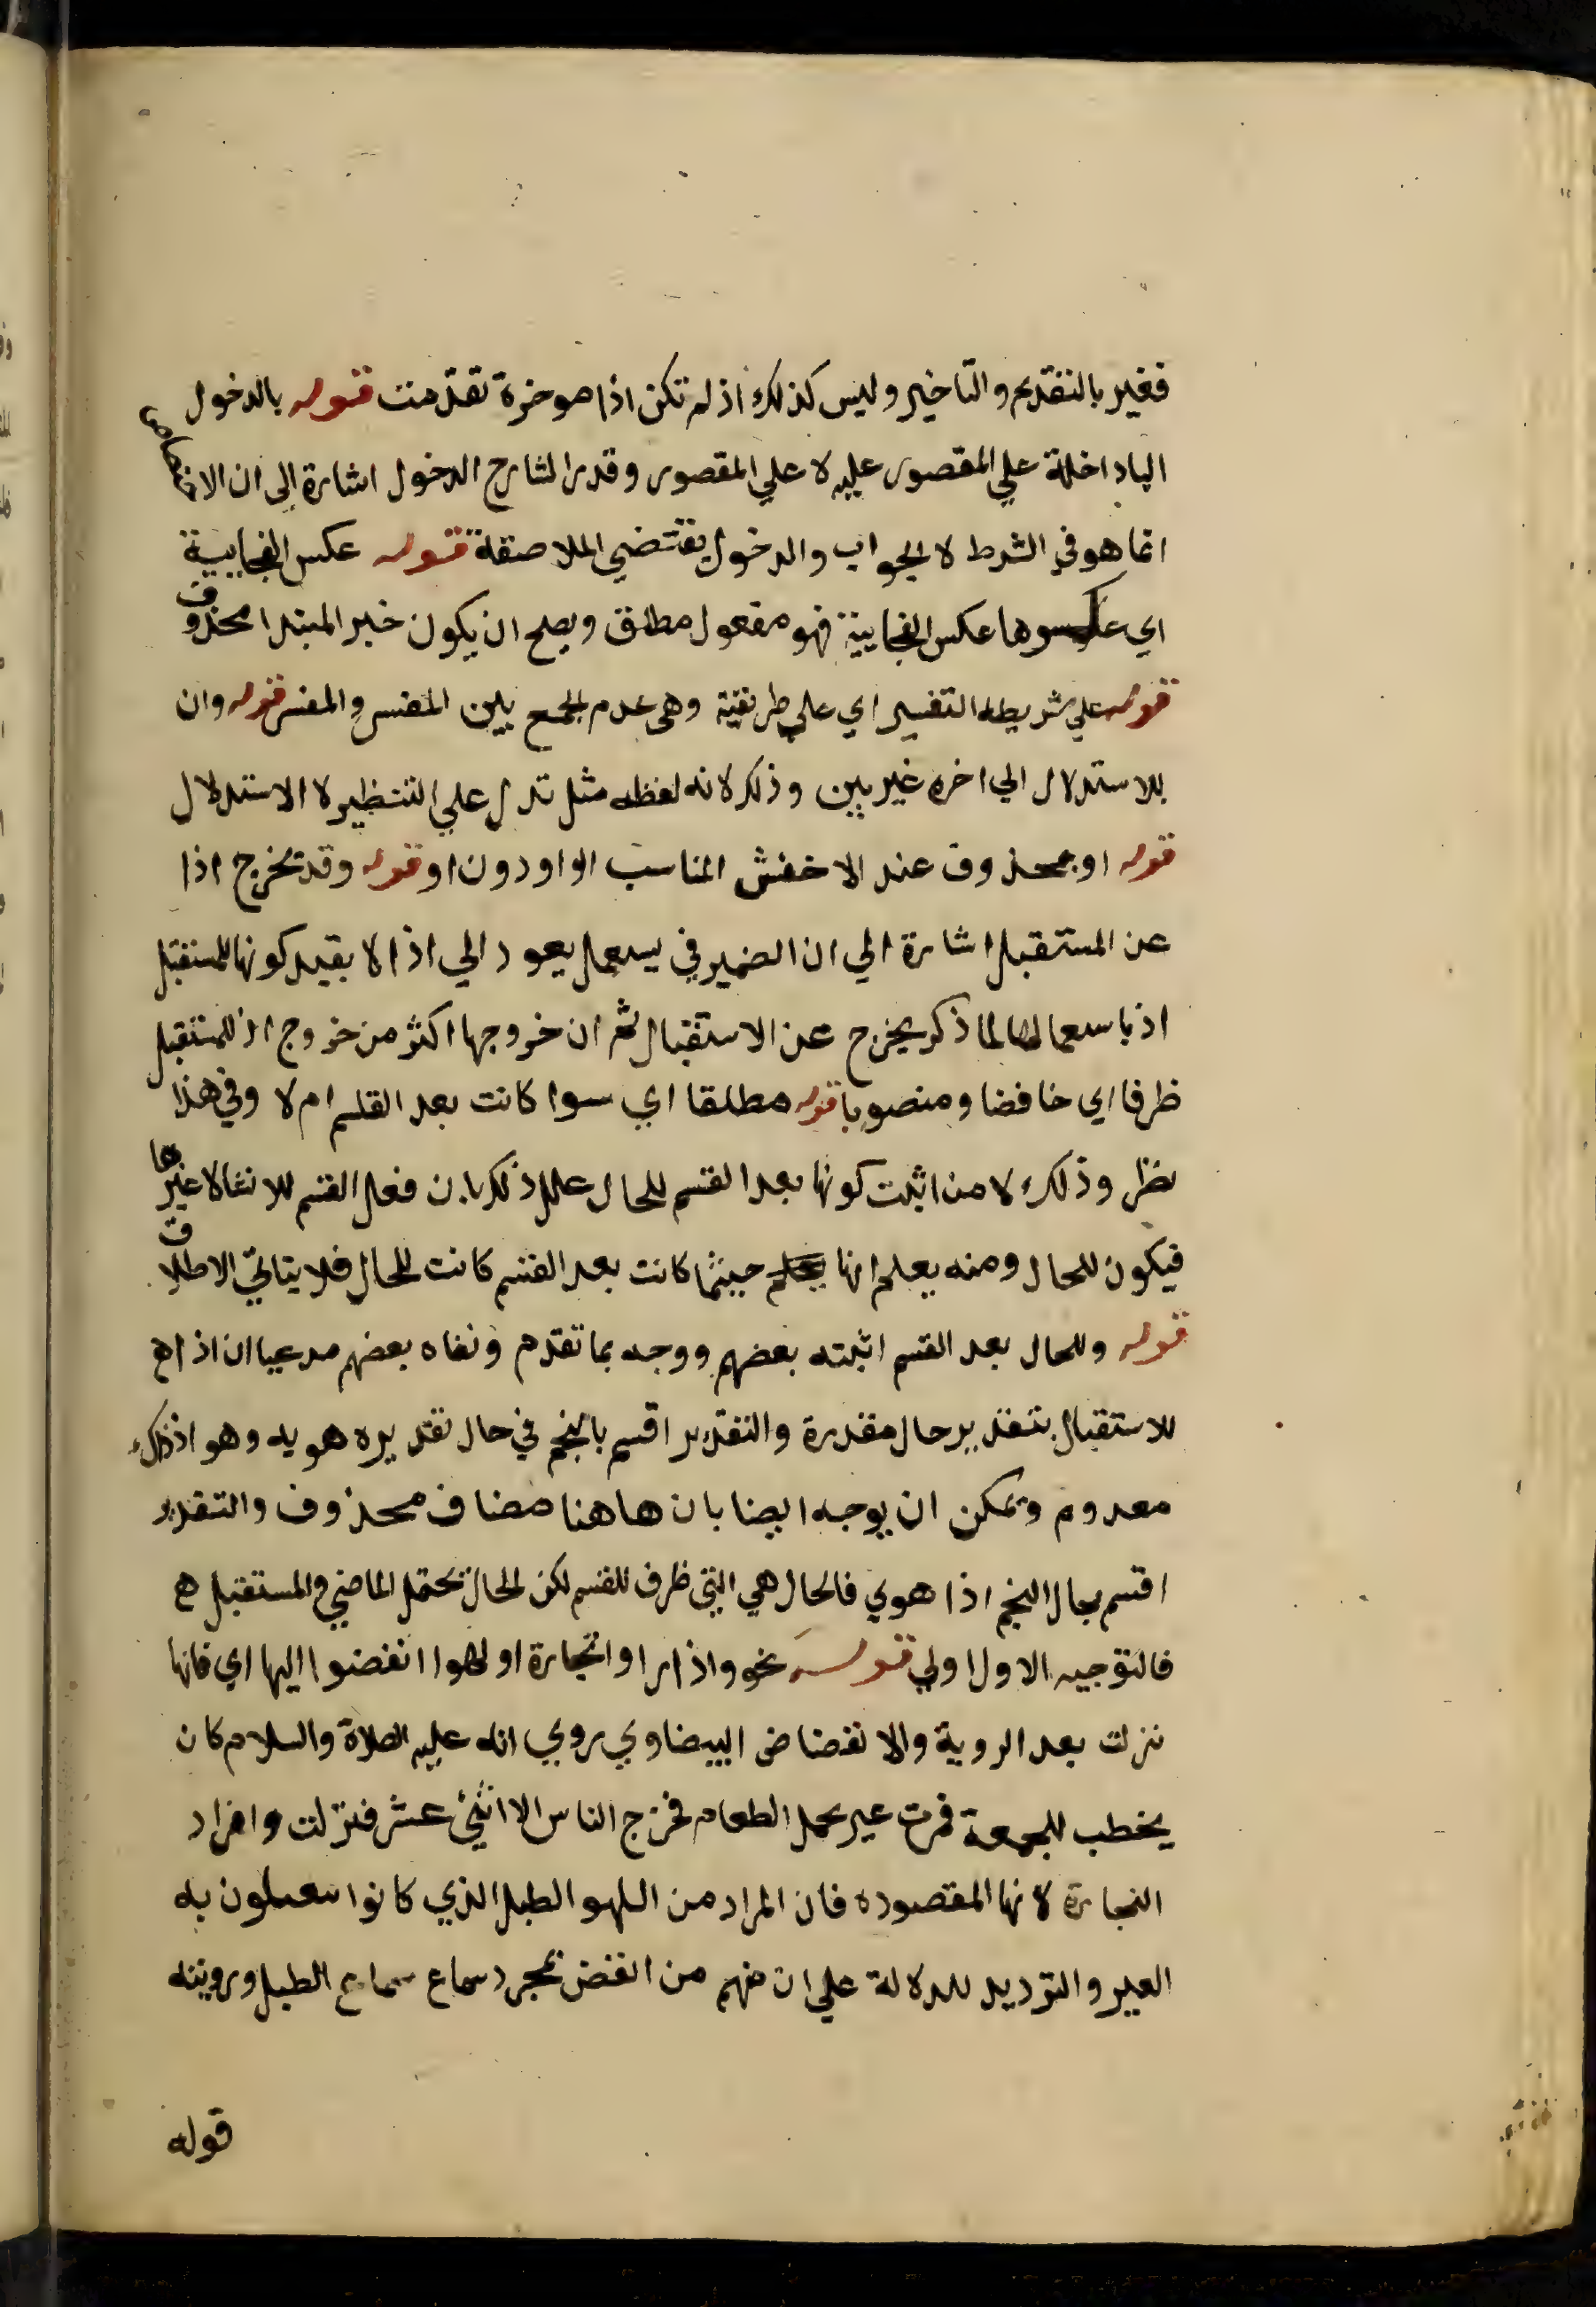 فغير بالتقديم والتاخير وليس كذلك اذ لم تكن اذا موخرة تقدمت قوله بالدخول
البا داخلة علي المقصور عليه لا علي المقصور وقدر الشارح الدخول اشارة الي ان الاختصاص
انما هو في الشرط لا الجواب والدخول يقتضي الملاصقة قوله عكس الفجايية
اي عكسوها عكس الفجايية فهو مفعول مطلق ويصح ان يكون خبر المبتدا محذوف
قوله علي شريطه التفسير اي علي طريقة وهي عدم الجمع بين المفسر والمفسر قوله وان
للاستدلال الي اخره غير بين وذلك لانه لفظه مثل تدل علي التنظير لا الاستدلال
قوله او بمحذوف عند الاخفش المناسب الواو دون او قوله وقد تخرج اذا
عن المستقبل اشارة الي ان الضمير في يستعمل يعود الي اذا لا بقيد كونها للمستقبل
اذ باستعمالها لما ذكر يخرج عن الاستقبال ثم ان خروجها اكثر من خروج اذ للمستقبل
ظرفا اي خافضا ومنصوبا قوله مطلقا اي سوا كانت بعد القسم ام لا وفي هذا
نظر وذلك لا من اثبت كونها بعد القسم للحال علل ذلك بان فعل القسم للانشا لا غيرها
فيكون للحال ومنه يعلم انها حيثما كانت بعد القسم كانت للحال فلا يتاتي الاطلاق
قوله وللحال بعد القسم اثبته بعضهم ووجه بما تقدم ونفاه بعضهم مدعيا ان اذا هي
للاستقبال بتقدير حال مقدرة والتقدير اقسم بالنجم في حال تقديره هويه وهو اذ ذلك
معدوم ويمكن ان يوجه ايضا بان هاهنا مضاف محذوف والتقدير
اقسم بحال النجم اذا هوي فالحال هي التي ظرف للقسم لكن الحال تحتمل الماضي والمستقبل هي
فالتوجيه الاول اولي قوله نحو واذا راوا تجارة او لهوا انفضوا اليها اي فانها
نزلت بعد الروية والانفضاض البيضاوي روي انه عليه الصلاة والسلام كان
يخطب للجمعة فمرت عير تحمل الطعام فخرج الناس الا اثني عشر فنزلت وافراد
التجارة لانها المقصوده فان المراد من اللهو الطبل الذي كانوا يستقبلون به
العير والترديد للدلالة علي ان منهم من انفض بمجرد سماع سماع الطبل ورويته
قوله